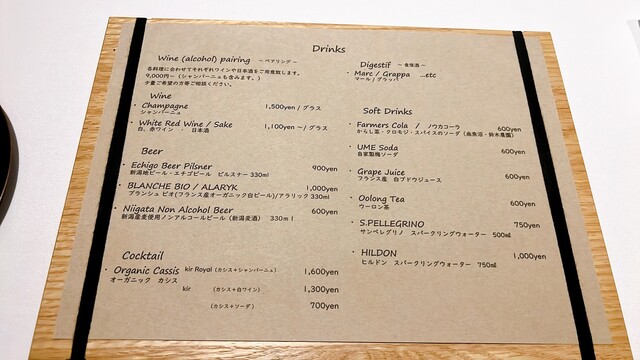 Drinks
Wine (alcohol) pairing ～ペアリング～
各料理に合わせてそれぞれワインや日本酒をご用意致します。
9,000円～（シャンパーニュも含みます。）
少量ご希望の方等ご相談ください。
Wine
・Champagne 1,500yen / グラス
シャンパーニュ
・White Red Wine / Sake 1,100yen ～/ グラス
白、赤ワイン ・ 日本酒
Beer
・Echigo Beer Pilsner 900yen
新潟地ビール・エチゴビール ピルスナー 330ml
・BLANCHE BIO / ALARYK 1,000yen
ブランシュ ビオ(フランス産オーガニック白ビール)/アラリック 330ml
・Niigata Non Alcohol Beer 600yen
新潟産麦使用ノンアルコールビール（新潟麦酒） 330ml
Cocktail
・Organic Cassis kir Royal (カシス+シャンパーニュ) 1,600yen
オーガニック カシス
kir (カシス+白ワイン) 1,300yen
(カシス+ソーダ) 700yen
Digestif ～食後酒～
・Marc / Grappa …etc
マール / グラッパ
Soft Drinks
・Farmers Cola / ノウカコーラ 600yen
からし菜・クロモジ・スパイスのソーダ（南魚沼・鈴木農園）
・UME Soda 600yen
自家製梅ソーダ
・Grape Juice 600yen
フランス産 白ブドウジュース
・Oolong Tea 600yen
ウーロン茶
・S.PELLEGRINO 750yen
サンペレグリノ スパークリングウォーター 500ml
・HILDON 1,000yen
ヒルドン スパークリングウォーター 750ml